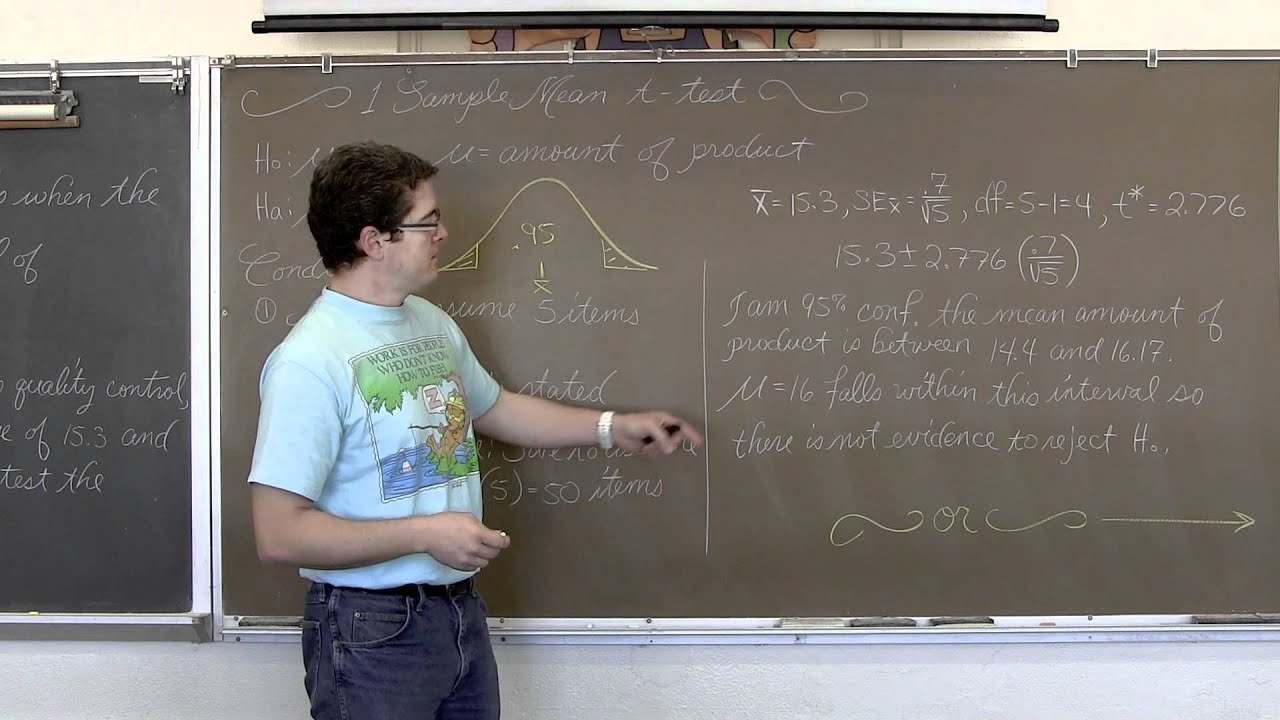 s when the
of
quality control,
e of 15.3 and
test the
1 Sample Mean t-test
Ho: μ
μ = amount of product
Ha:
.95
1
x
Cond
① sume 5 items
stated
(5) = 50 items
x̄ = 15.3, SEx̄ = .7/√5, df = 5-1=4, t* = 2.776
15.3 ± 2.776 (.7/√5)
I am 95% conf. the mean amount of
product is between 14.4 and 16.17.
μ = 16 falls within this interval so
there is not evidence to reject Ho.
or
WORK IS FOR PEOPLE
WHO DON'T KNOW
HOW TO FISH
Z